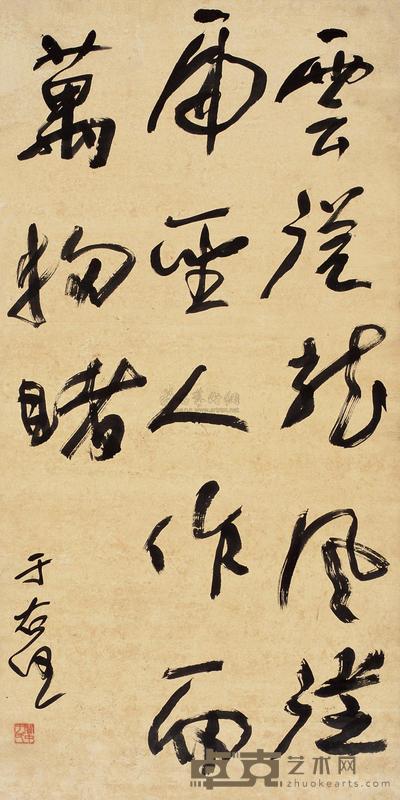 雲從龍風從
虎聖人作而
萬物睹
于右任
卓克艺术网
zhuokearts.com